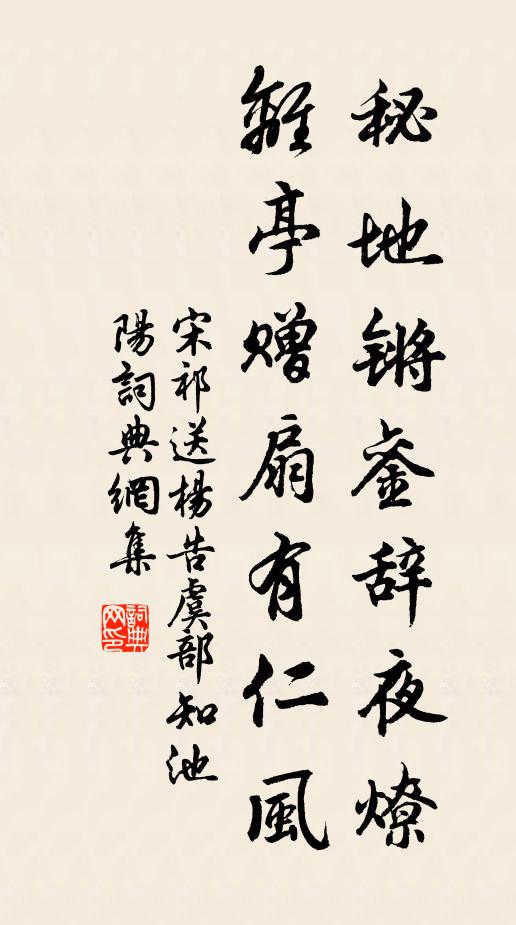 秘地锵銮辞夜燎
離亭赠扇有仁風
宋祁送楊告虞部知池
陽詞典網集
詞典
网印